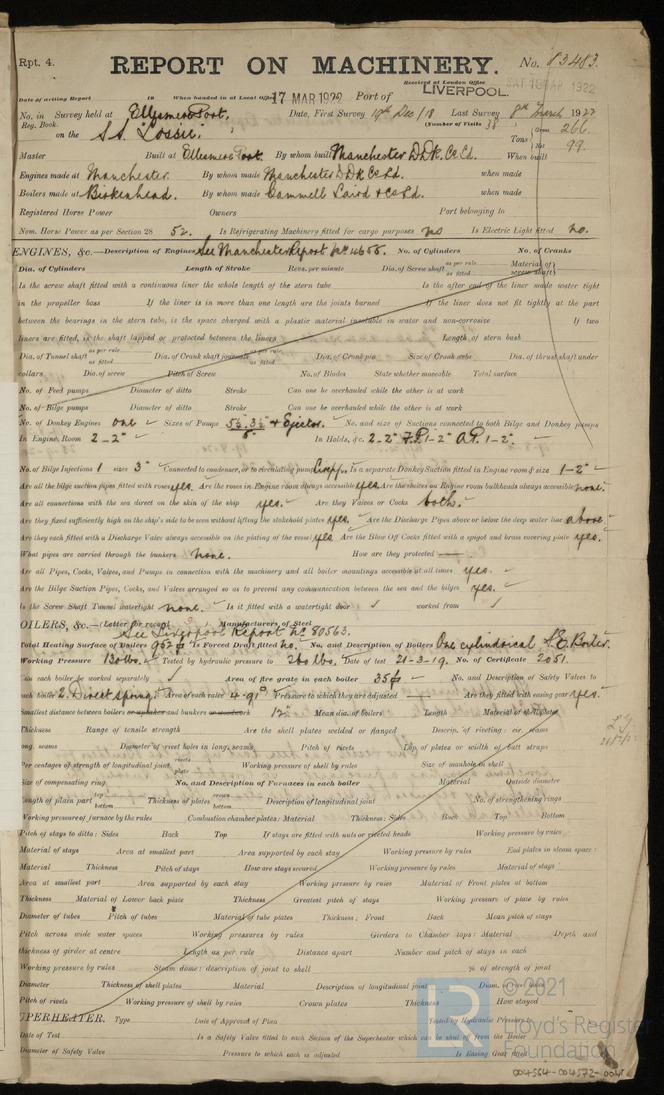 Rpt. 4. REPORT ON MACHINERY. No. 83483.
Received at London Office SAT 18 MAR 1922
Date of writing Report 19 When handed in at Local Office 17 MAR 1922 Port of LIVERPOOL.
No. in Survey held at Ellesmere Port. Date, First Survey 19th Dec /18 Last Survey 9th March 1922
Reg. Book. (Number of Visits 38
on the S.S. Lossie. Tons Gross 266. Net 99.
Master Built at Ellesmere Port. By whom built Manchester D.D.&c. Co Ld. When built
Engines made at Manchester. By whom made Manchester D.D.&c. Co Ld. when made
Boilers made at Birkenhead. By whom made Cammell Laird & Co Ld. when made
Registered Horse Power Owners Port belonging to
Nom. Horse Power as per Section 28 52. Is Refrigerating Machinery fitted for cargo purposes no Is Electric Light fitted no.
ENGINES, &c.—Description of Engines See Manchester Report No 4655. No. of Cylinders No. of Cranks
Dia. of Cylinders Length of Stroke Revs. per minute Dia. of Screw shaft as per rule as fitted Material of screw shaft
Is the screw shaft fitted with a continuous liner the whole length of the stern tube Is the after end of the liner made water tight
in the propeller boss If the liner is in more than one length are the joints burned If the liner does not fit tightly at the part
between the bearings in the stern tube, is the space charged with a plastic material insoluble in water and non-corrosive If two
liners are fitted, is the shaft lapped or protected between the liners Length of stern bush
Dia. of Tunnel shaft as per rule as fitted Dia. of Crank shaft journals as per rule as fitted Dia. of Crank pin Size of Crank webs Dia. of thrust shaft under
collars Dia. of screw Pitch of Screw No. of Blades State whether moveable Total surface
No. of Feed pumps Diameter of ditto Stroke Can one be overhauled while the other is at work
No. of Bilge pumps Diameter of ditto Stroke Can one be overhauled while the other is at work
No. of Donkey Engines one Sizes of Pumps & Ejector. No. and size of Suctions connected to both Bilge and Donkey pumps
In Engine Room 2-2" In Holds, &c. 2-2" F.P. 1-2" A.P. 1-2".
No. of Bilge Injections 1 sizes 3" Connected to condenser, or to circulating pump Circ. p. Is a separate Donkey Suction fitted in Engine room & size 1-2"
Are all the bilge suction pipes fitted with roses yes. Are the roses in Engine room always accessible yes Are the sluices on Engine room bulkheads always accessible none.
Are all connections with the sea direct on the skin of the ship yes. Are they Valves or Cocks both.
Are they fixed sufficiently high on the ship's side to be seen without lifting the stokehold plates yes. Are the Discharge Pipes above or below the deep water line above
Are they each fitted with a Discharge Valve always accessible on the plating of the vessel yes Are the Blow Off Cocks fitted with a spigot and brass covering plate yes.
What pipes are carried through the bunkers none. How are they protected —
Are all Pipes, Cocks, Valves, and Pumps in connection with the machinery and all boiler mountings accessible at all times yes.
Are the Bilge Suction Pipes, Cocks, and Valves arranged so as to prevent any communication between the sea and the bilges yes.
Is the Screw Shaft Tunnel watertight none. Is it fitted with a watertight door worked from
OILERS, &c.—(Letter for record Manufacturers of Steel
See Liverpool Report No 80563.
Total Heating Surface of Boilers Is Forced Draft fitted no. No. and Description of Boilers One cylindrical S.E. Boiler.
Working Pressure 130 lbs. Tested by hydraulic pressure to 260 lbs. Date of test 21-3-19. No. of Certificate 2051.
Can each boiler be worked separately Area of fire grate in each boiler No. and Description of Safety Valves to
each boiler 2. Direct spring. Area of each valve 4.91" Pressure to which they are adjusted Are they fitted with easing gear yes.
Smallest distance between boilers or uptakes and bunkers or woodwork 12" Mean dia. of boilers Length Material of shell plates
Thickness Range of tensile strength Are the shell plates welded or flanged Descrip. of riveting: cir. seams
long. seams Diameter of rivet holes in long. seams Pitch of rivets Lap of plates or width of butt straps
Per centages of strength of longitudinal joint rivets plate Working pressure of shell by rules Size of manhole in shell
Size of compensating ring No. and Description of Furnaces in each boiler Material Outside diameter
Length of plain part top bottom Thickness of plates crown bottom Description of longitudinal joint No. of strengthening rings
Working pressure of furnace by the rules Combustion chamber plates: Material Thickness: Sides Back Top Bottom
Pitch of stays to ditto: Sides Back Top If stays are fitted with nuts or riveted heads Working pressure by rules
Material of stays Area at smallest part Area supported by each stay Working pressure by rules End plates in steam space:
Material Thickness Pitch of stays How are stays secured Working pressure by rules Material of stays
Area at smallest part Area supported by each stay Working pressure by rules Material of Front plates at bottom
Thickness Material of Lower back plate Thickness Greatest pitch of stays Working pressure of plate by rules
Diameter of tubes Pitch of tubes Material of tube plates Thickness: Front Back Mean pitch of stays
Pitch across wide water spaces Working pressures by rules Girders to Chamber tops: Material Depth and
thickness of girder at centre Length as per rule Distance apart Number and pitch of stays in each
Working pressure by rules Steam dome: description of joint to shell % of strength of joint
Diameter Thickness of shell plates Material Description of longitudinal joint Diam. of rivet holes
Pitch of rivets Working pressure of shell by rules Crown plates Thickness How stayed
UPERHEATER. Type Date of Approval of Plan Tested by Hydraulic Pressure to
Date of Test Is a Safety Valve fitted to each Section of the Superheater which can be shut off from the Boiler
Diameter of Safety Valve Pressure to which each is adjusted Is Easing Gear fitted
LR © 2021
Lloyd's Register
Foundation
004564-004572-0041